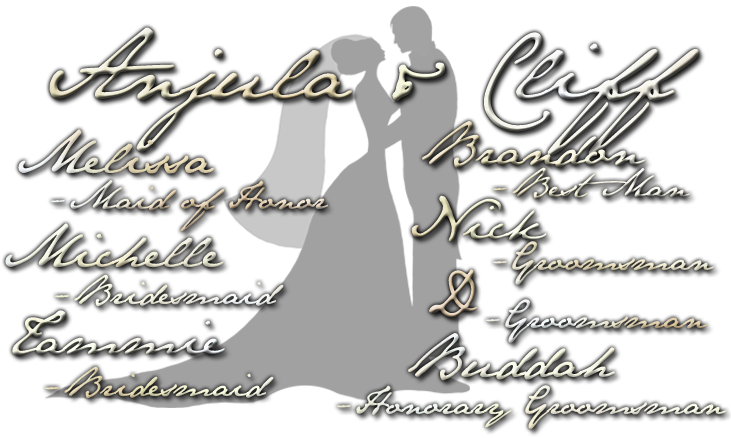 Anjula & Cliff
Melissa
- Maid of Honor
Michelle
- Bridesmaid
Tammie
- Bridesmaid
Brandon
- Best Man
Nick
- Groomsman
D
- Groomsman
Buddah
- Honorary Groomsman